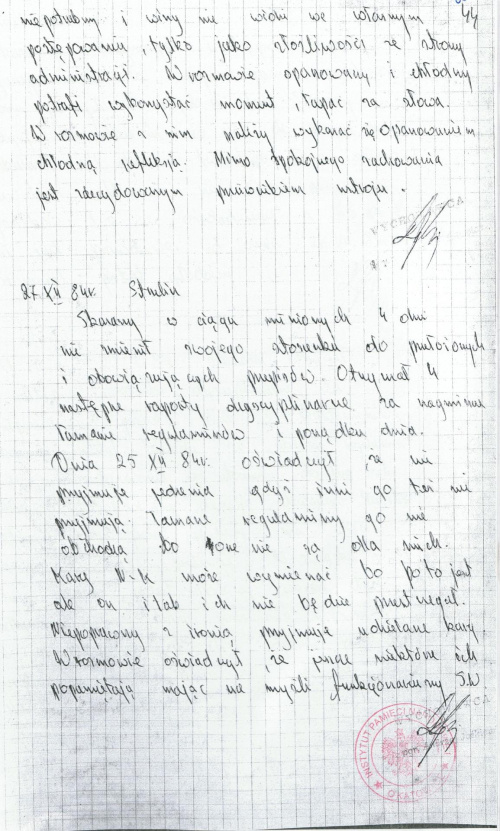 44
niepotrzebny i winy nie widzi we własnym
postępowaniu, tylko jako złośliwość ze strony
administracji. W rozmowie opanowany i chłodny
potrafi wykorzystać moment, łapać za słowa.
W rozmowie z nim należy wykazać się opanowaniem
chłodną refleksją. Mimo spokojnego zachowania
jest zdecydowanym przeciwnikiem ustroju.
WYCHOWAWCA
27 XII 84r. Strzelin
Skazany w ciągu minionych 4 dni
nie zmienił swojego stosunku do przełożonych
i obowiązujących przepisów. Otrzymał 4
następne raporty dyscyplinarne za nagminne
łamanie regulaminów i porządku dnia.
Dnia 25 XII 84r. oświadczył, że nie
przyjmuje jedzenia gdyż inni go też nie
przyjmują. Łamane regulaminy go nie
obchodzą bo one nie są dla nich.
Kary N-k może wymierzać bo po to jest
ale on i tak ich nie będzie przestrzegał.
Niepoprawny z ironią przyjmuje udzielane kary.
W rozmowie oświadczył, że jeszcze niektóre ich
popamiętają mając na myśli funkcjonariuszy S.W
INSTYTUT PAMIĘCI